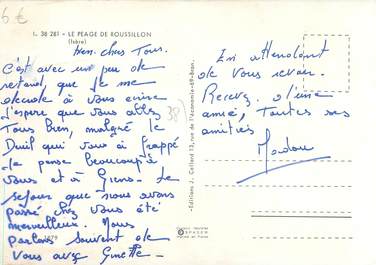 6 €
L. 38 281 - LE PEAGE DE ROUSSILLON
(Isère)
bien chers Tous.
C'est avec un peu de
retard, que je me
décide à vous écrire
j'espère que vous allez
Tous bien, malgré le
Deuil qui vous à frappé
Je pense beaucoup à
vous et à Le
séjour que nous avons
passé chez vous été
merveilleux. Nous
parlons souvent de
vous avec Ginette -
38)
En attendant
de vous revoir.
Recevez. d'une
amie, Toutes ses
amitiés
Editions J. Cellard 13, rue de l'économie - 69 - Bron.